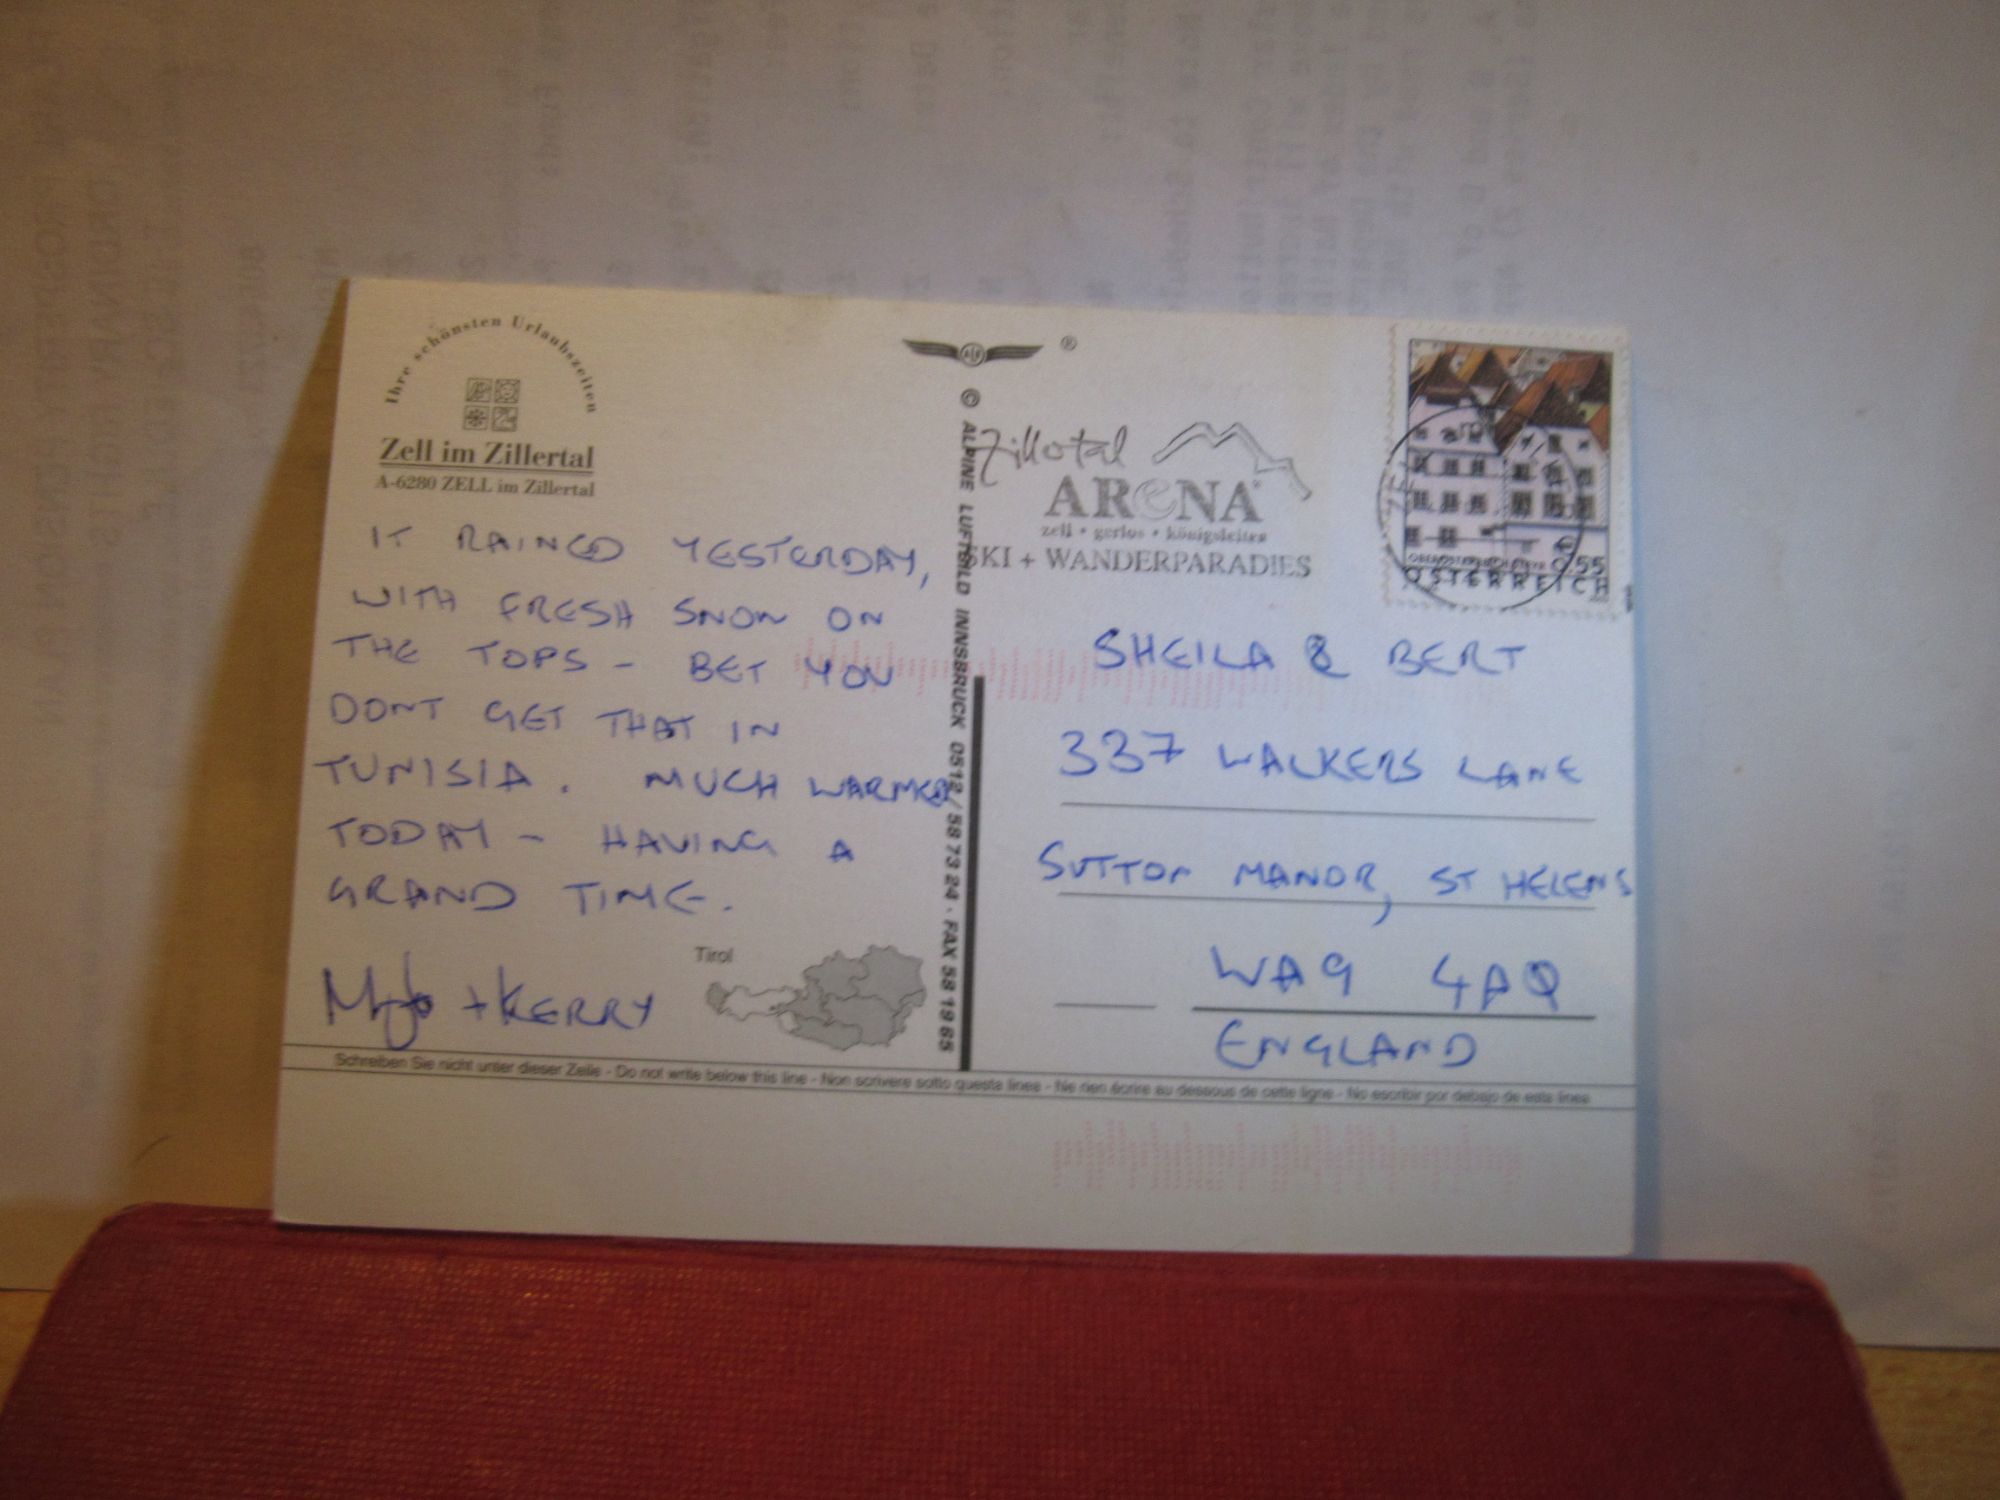 Ihre schönsten Urlaubszeiten
Zell im Zillertal
A-6280 ZELL im Zillertal
IT RAINED YESTERDAY,
WITH FRESH SNOW ON
THE TOPS - BET YOU
DONT GET THAT IN
TUNISIA. MUCH WARMER
TODAY - HAVING A
GRAND TIME.
+ KERRY
Tirol
®
© ALPINE LUFTBILD INNSBRUCK 0512/58 73 24 · FAX 58 19 65
Zillertal
ARENA
zell • gerlos • königsleiten
SKI + WANDERPARADIES
€ 0,55
ÖSTERREICH
SHEILA & BERT
337 WALKERS LANE
SUTTON MANOR, ST HELENS
WA9 4AQ
ENGLAND
Schreiben Sie nicht unter dieser Zeile - Do not write below this line - Non scrivere sotto questa linea - Ne rien écrire au dessous de cette ligne - No escribir por debajo de esta linea